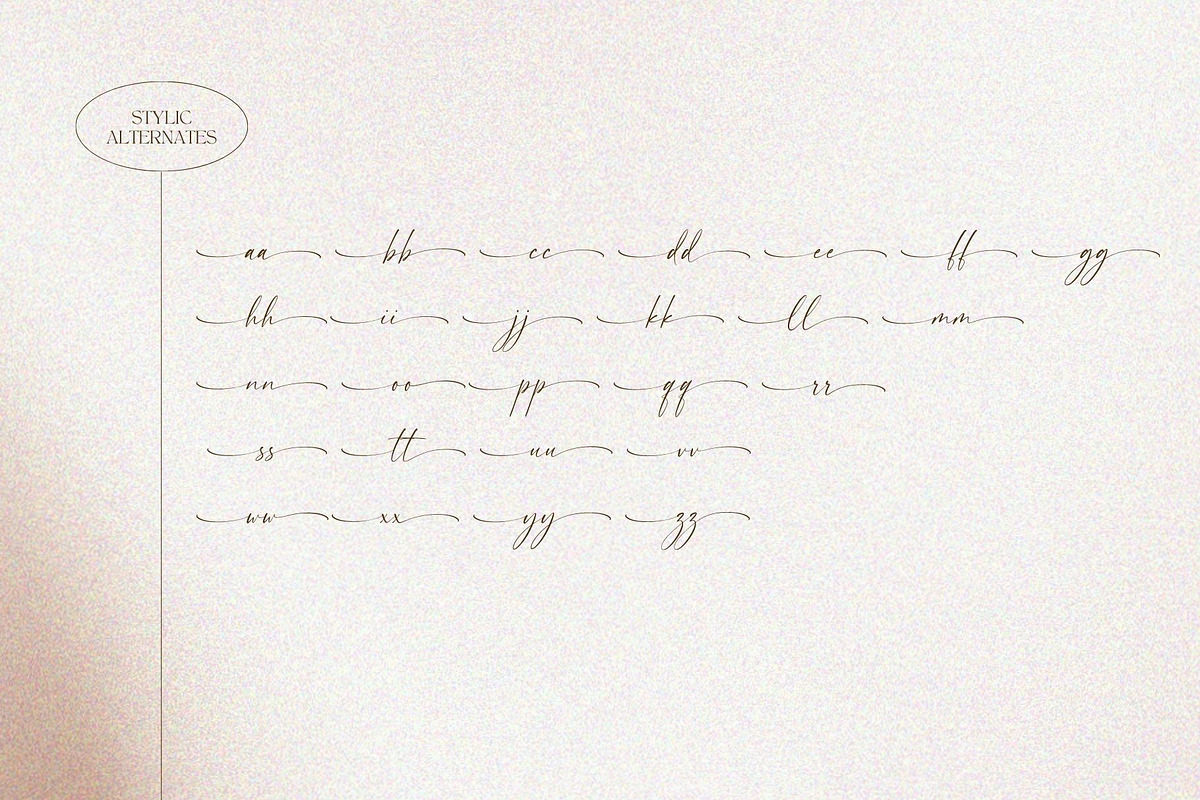 STYLIC
ALTERNATES
aa bb cc dd ee ff gg
hh ii jj kk ll mm
nn oo pp qq rr
ss tt uu vv
ww xx yy zz